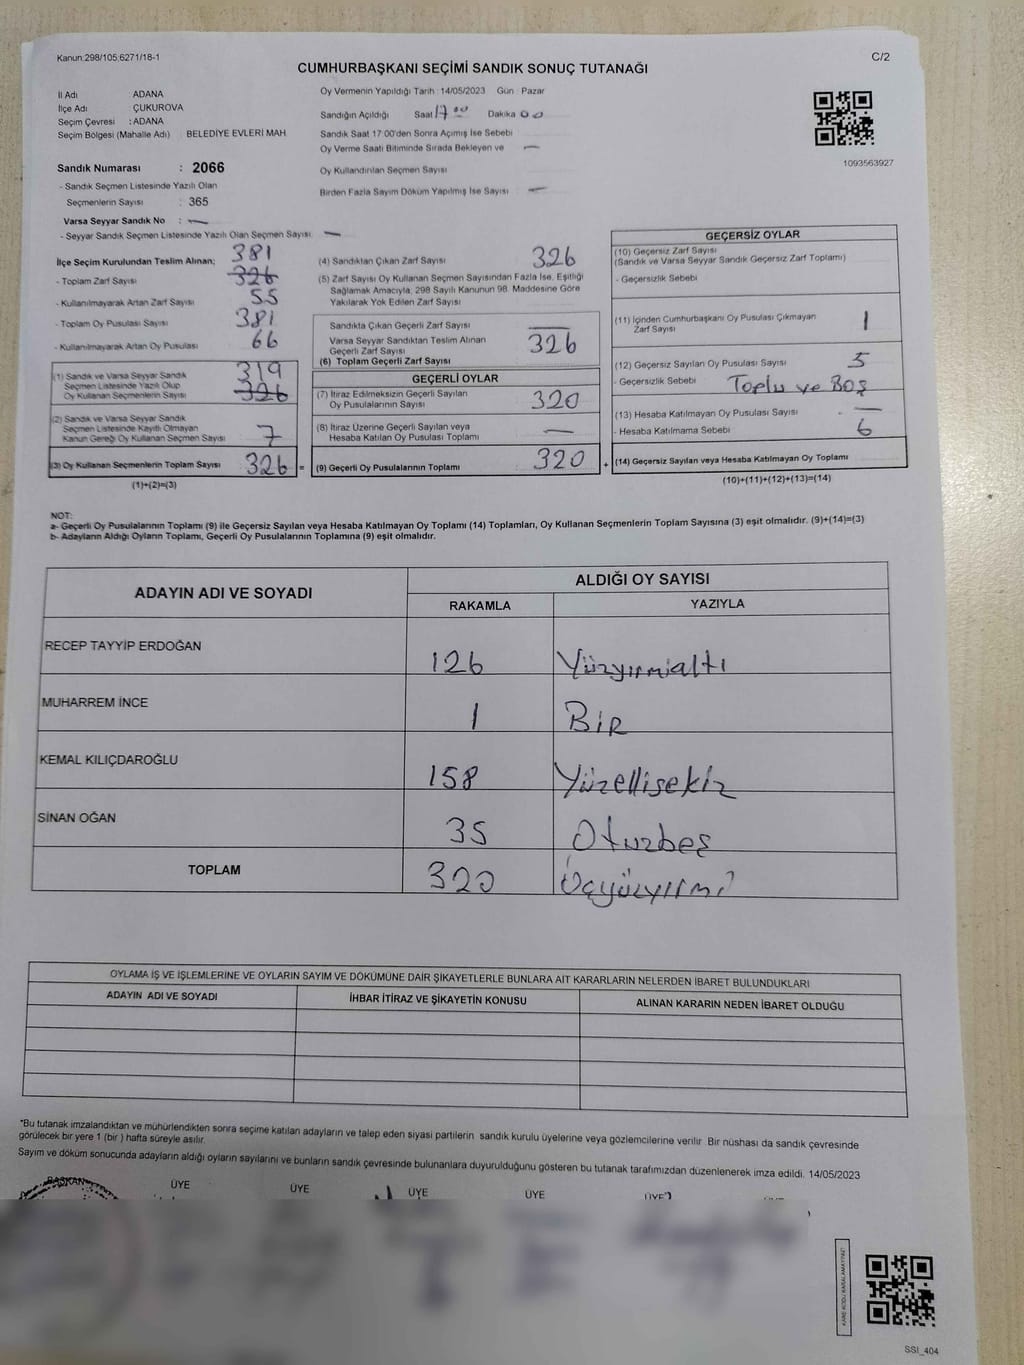 Kanun:298/105;6271/18-1
C/2
CUMHURBAŞKANI SEÇİMİ SANDIK SONUÇ TUTANAĞI
İl Adı : ADANA
İlçe Adı : ÇUKUROVA
Seçim Çevresi : ADANA
Seçim Bölgesi (Mahalle Adı) BELEDİYE EVLERİ MAH
Sandık Numarası : 2066
- Sandık Seçmen Listesinde Yazılı Olan
Seçmenlerin Sayısı : 365
Varsa Seyyar Sandık No : —
- Seyyar Sandık Seçmen Listesinde Yazılı Olan Seçmen Sayısı : —
Oy Vermenin Yapıldığı Tarih : 14/05/2023 Gün : Pazar
Sandığın Açıldığı Saat 17 00 Dakika 00
Sandık Saat 17:00'den Sonra Açılmış İse Sebebi
Oy Verme Saati Bitiminde Sırada Bekleyen ve —
Oy Kullandırılan Seçmen Sayısı
Birden Fazla Sayım Döküm Yapılmış İse Sayısı : —
1093563927
İlçe Seçim Kurulundan Teslim Alınan; 381
- Toplam Zarf Sayısı 326
- Kullanılmayarak Artan Zarf Sayısı 55
- Toplam Oy Pusulası Sayısı 381
- Kullanılmayarak Artan Oy Pusulası 66
(1) Sandık ve Varsa Seyyar Sandık 319
Seçmen Listesinde Yazılı Olup
Oy Kullanan Seçmenlerin Sayısı 326
(2) Sandık ve Varsa Seyyar Sandık
Seçmen Listesinde Kayıtlı Olmayan
Kanun Gereği Oy Kullanan Seçmen Sayısı 7
(3) Oy Kullanan Seçmenlerin Toplam Sayısı 326 =
(1)+(2)=(3)
(4) Sandıktan Çıkan Zarf Sayısı 326
(5) Zarf Sayısı Oy Kullanan Seçmen Sayısından Fazla İse, Eşitliği
Sağlamak Amacıyla, 298 Sayılı Kanunun 98. Maddesine Göre
Yakılarak Yok Edilen Zarf Sayısı
Sandıkta Çıkan Geçerli Zarf Sayısı —
Varsa Seyyar Sandıktan Teslim Alınan
Geçerli Zarf Sayısı
(6) Toplam Geçerli Zarf Sayısı 326
GEÇERLİ OYLAR
(7) İtiraz Edilmeksizin Geçerli Sayılan
Oy Pusulalarının Sayısı 320
(8) İtiraz Üzerine Geçerli Sayılan veya
Hesaba Katılan Oy Pusulası Toplamı —
(9) Geçerli Oy Pusulalarının Toplamı 320 +
GEÇERSİZ OYLAR
(10) Geçersiz Zarf Sayısı
(Sandık ve Varsa Seyyar Sandık Geçersiz Zarf Toplamı)
- Geçersizlik Sebebi
(11) İçinden Cumhurbaşkanı Oy Pusulası Çıkmayan
Zarf Sayısı 1
(12) Geçersiz Sayılan Oy Pusulası Sayısı 5
- Geçersizlik Sebebi Toplu ve Boş
(13) Hesaba Katılmayan Oy Pusulası Sayısı —
- Hesaba Katılmama Sebebi 6
(14) Geçersiz Sayılan veya Hesaba Katılmayan Oy Toplamı
(10)+(11)+(12)+(13)=(14)
NOT:
a- Geçerli Oy Pusulalarının Toplamı (9) ile Geçersiz Sayılan veya Hesaba Katılmayan Oy Toplamı (14) Toplamları, Oy Kullanan Seçmenlerin Toplam Sayısına (3) eşit olmalıdır. (9)+(14)=(3)
b- Adayların Aldığı Oyların Toplamı, Geçerli Oy Pusulalarının Toplamına (9) eşit olmalıdır.
ADAYIN ADI VE SOYADI
ALDIĞI OY SAYISI
RAKAMLA YAZIYLA
RECEP TAYYİP ERDOĞAN 126 Yüzyirmialtı
MUHARREM İNCE 1 BİR
KEMAL KILIÇDAROĞLU 158 Yüzellisekiz
SİNAN OĞAN 35 Otuzbeş
TOPLAM 320 Üçyüzyirmi
OYLAMA İŞ VE İŞLEMLERİNE VE OYLARIN SAYIM VE DÖKÜMÜNE DAİR ŞİKAYETLERLE BUNLARA AİT KARARLARIN NELERDEN İBARET BULUNDUKLARI
ADAYIN ADI VE SOYADI İHBAR İTİRAZ VE ŞİKAYETİN KONUSU ALINAN KARARIN NEDEN İBARET OLDUĞU
*Bu tutanak imzalandıktan ve mühürlendikten sonra seçime katılan adayların ve talep eden siyasi partilerin sandık kurulu üyelerine veya gözlemcilerine verilir. Bir nüshası da sandık çevresinde
görülecek bir yere 1 (bir ) hafta süreyle asılır.
Sayım ve döküm sonucunda adayların aldığı oyların sayılarını ve bunların sandık çevresinde bulunanlara duyurulduğunu gösteren bu tutanak tarafımızdan düzenlenerek imza edildi. 14/05/2023
BAŞKAN ÜYE ÜYE ÜYE ÜYE ÜYE
SSI_404